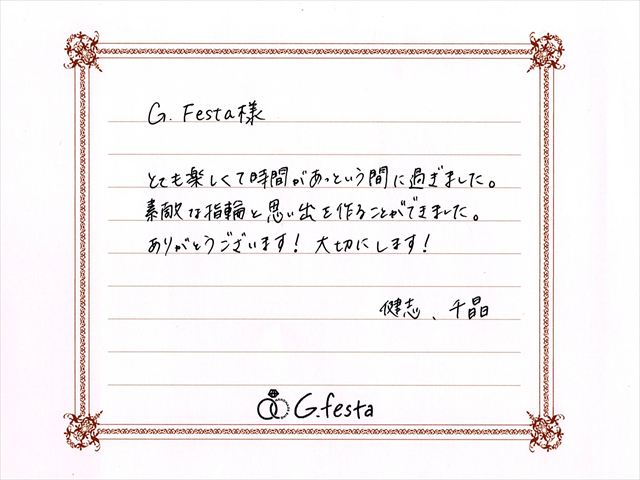 G. Festa様
とても楽しくて時間があっという間に過ぎました。
素敵な指輪と思い出を作ることができました。
ありがとうございます! 大切にします!
健志、千晶
G.festa